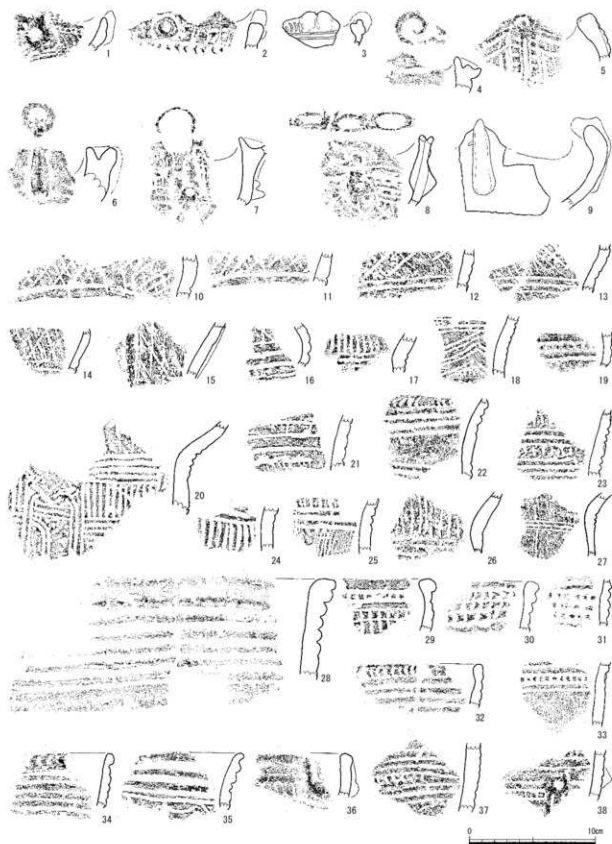 1 2 3 4 5
6 7 8 9
10 11 12 13
14 15 16 17 18 19
20 21 22 23
24 25 26 27
28 29 30 31
32 33
34 35 36 37 38
0 10cm